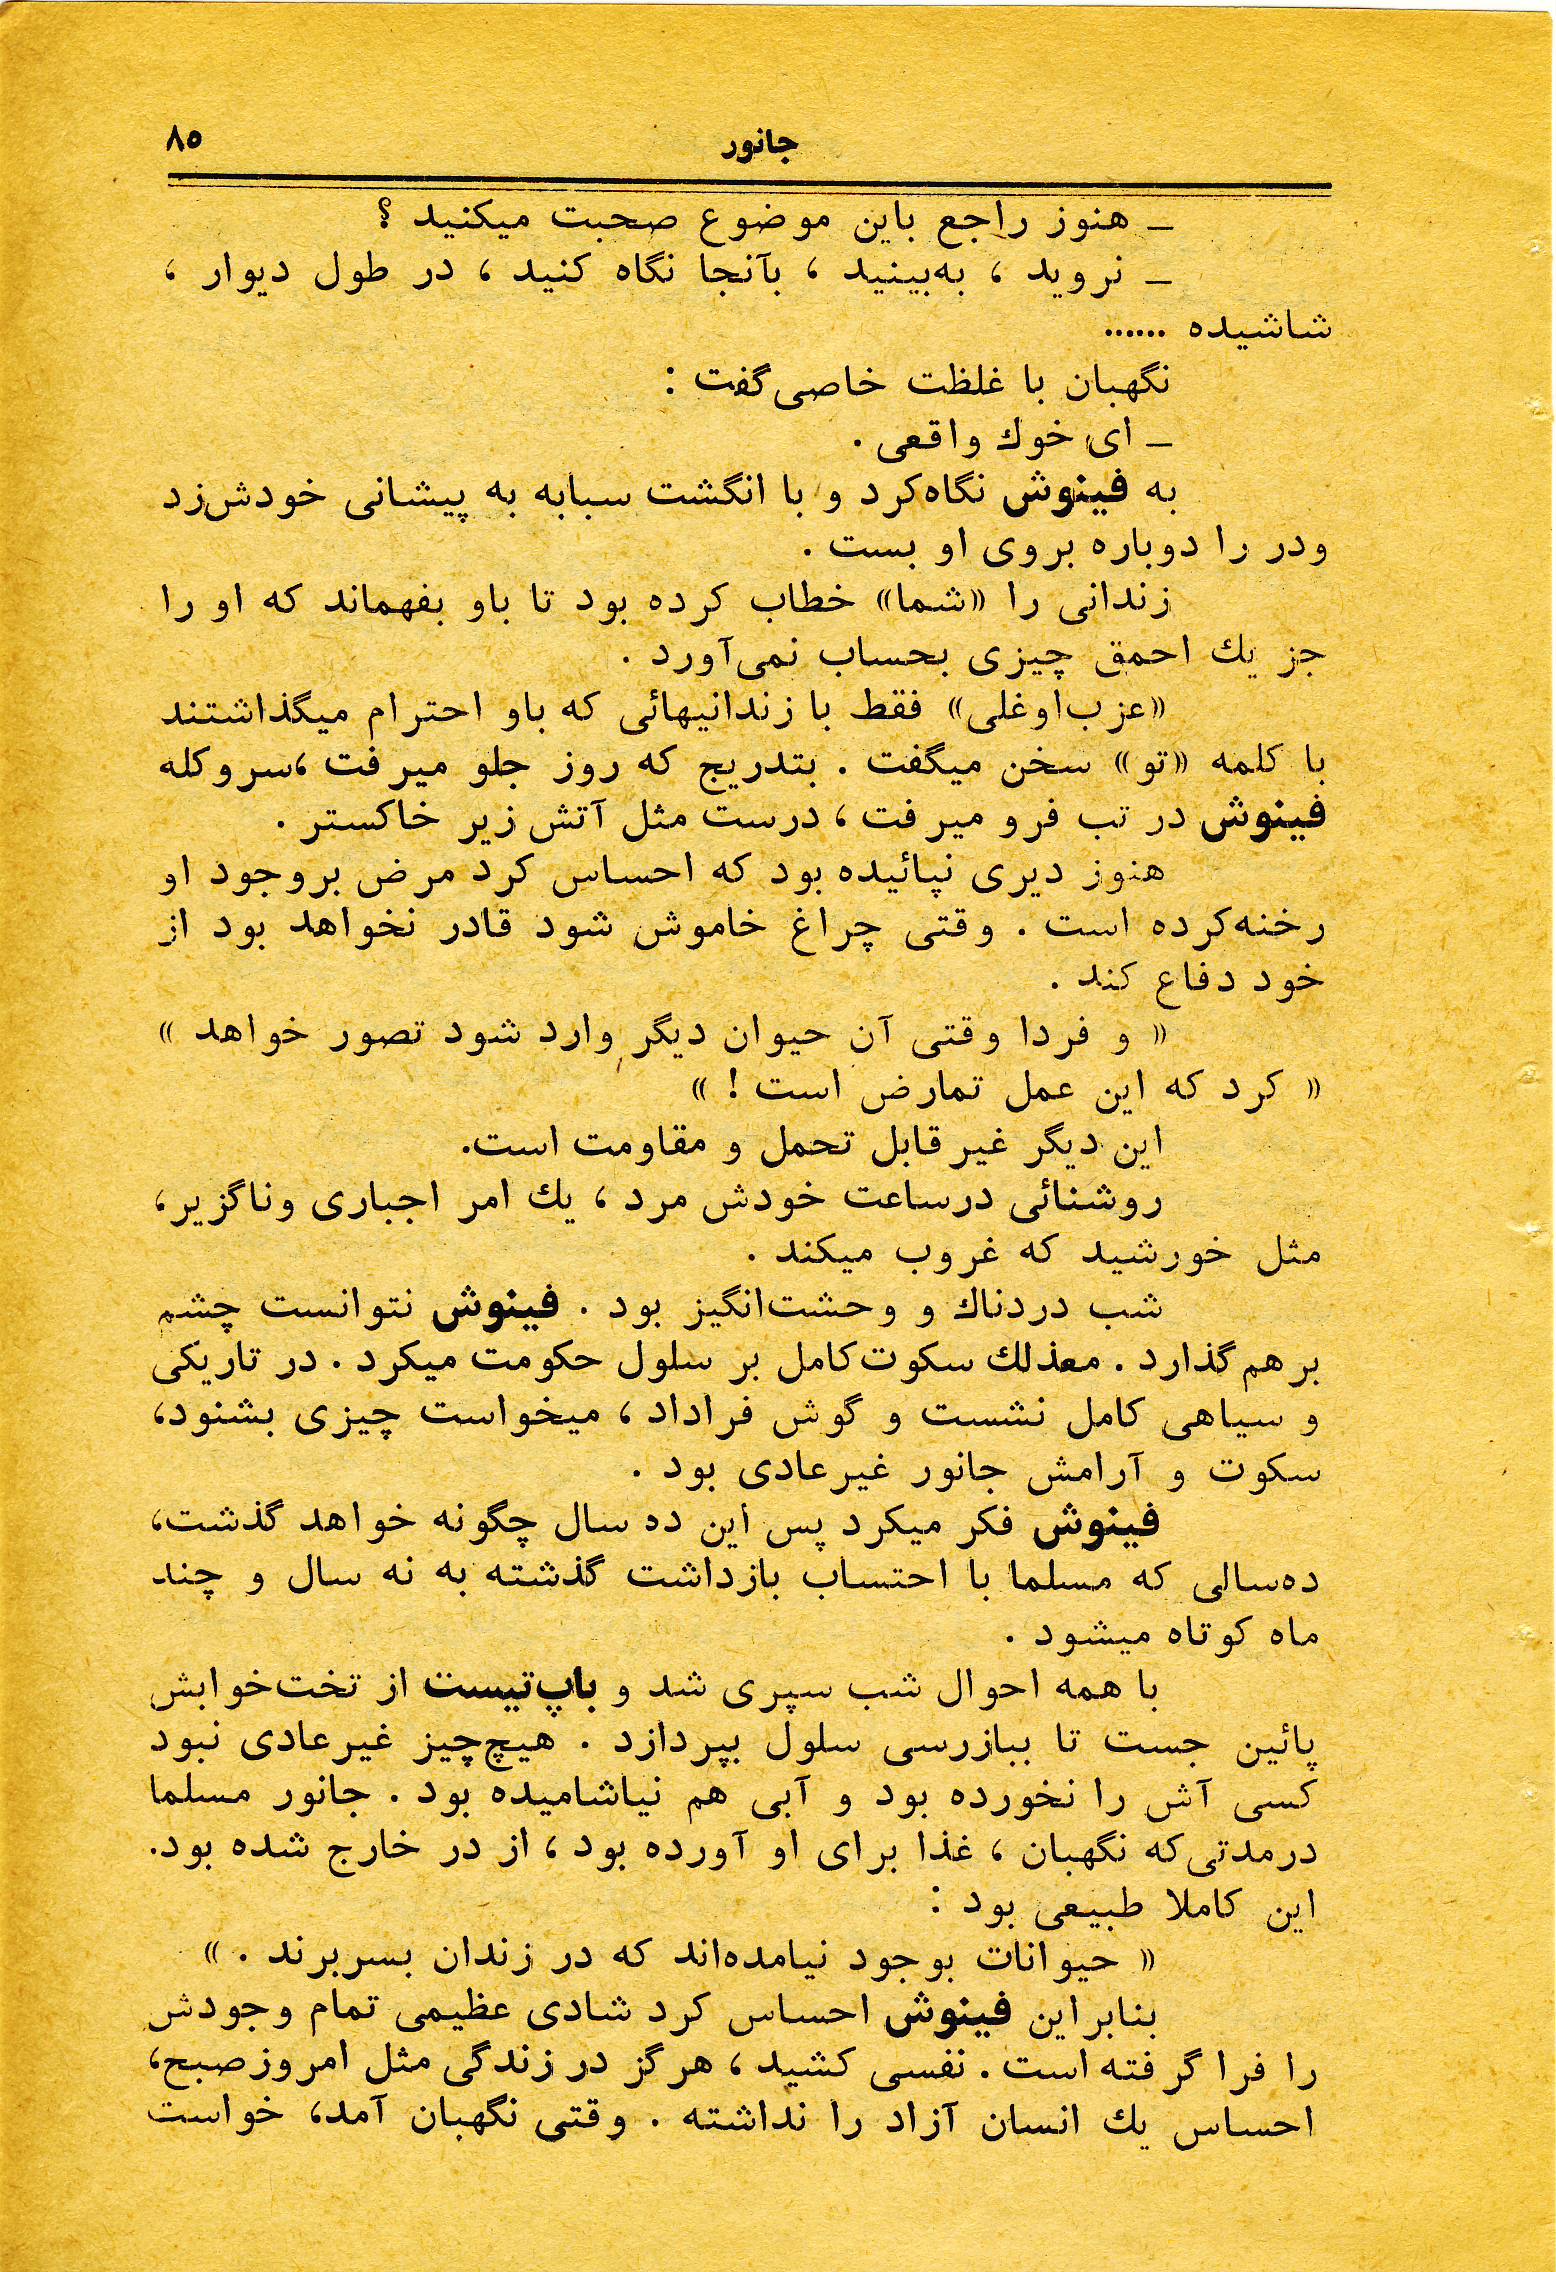 جانور
۸۵
ـ هنوز راجع باین موضوع صحبت میکنید ؟
ـ نروید ، به‌بینید ، بآنجا نگاه کنید ، در طول دیوار ،
شاشیده ......
نگهبان با غلظت خاصی‌گفت :
ـ ای خوك واقعی .
به فینوش نگاه‌کرد و با انگشت سبابه به پیشانی خودش‌زد
ودر را دوباره بروی او بست .
زندانی را «شما» خطاب کرده بود تا باو بفهماند که او را
جز یك احمق چیزی بحساب نمی‌آورد .
«عزب‌اوغلی» فقط با زندانیهائی که باو احترام میگذاشتند
با کلمه «تو» سخن میگفت . بتدریج که روز جلو میرفت ،سروکله
فینوش در تب فرو میرفت ، درست مثل آتش زیر خاکستر .
هنوز دیری نپائیده بود که احساس کرد مرض بروجود او
رخنه‌کرده است . وقتی چراغ خاموش شود قادر نخواهد بود از
خود دفاع کند .
« و فردا وقتی آن حیوان دیگر وارد شود تصور خواهد »
« کرد که این عمل تمارض است ! »
این دیگر غیرقابل تحمل و مقاومت است.
روشنائی درساعت خودش مرد ، یك امر اجباری وناگزیر،
مثل خورشید که غروب میکند .
شب دردناك و وحشت‌انگیز بود . فینوش نتوانست چشم
برهم‌گذارد . معذلك سکوت‌کامل بر سلول حکومت میکرد . در تاریکی
و سیاهی کامل نشست و گوش فراداد ، میخواست چیزی بشنود،
سکوت و آرامش جانور غیرعادی بود .
فینوش فکر میکرد پس این ده سال چگونه خواهد گذشت،
ده‌سالی که مسلما با احتساب بازداشت گذشته به نه سال و چند
ماه کوتاه میشود .
با همه احوال شب سپری شد و باپ‌تیست از تخت‌خوابش
پائین جست تا ببازرسی سلول بپردازد . هیچ‌چیز غیرعادی نبود
کسی آش را نخورده بود و آبی هم نیاشامیده بود . جانور مسلما
درمدتی‌که نگهبان ، غذا برای او آورده بود ، از در خارج شده بود.
این کاملا طبیعی بود :
« حیوانات بوجود نیامده‌اند که در زندان بسربرند . »
بنابراین فینوش احساس کرد شادی عظیمی تمام وجودش
را فراگرفته است . نفسی کشید ، هرگز در زندگی مثل امروزصبح،
احساس یك انسان آزاد را نداشته . وقتی نگهبان آمد، خواست